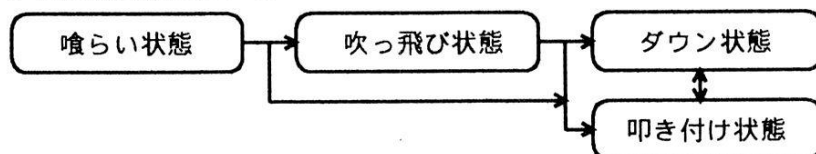 喰らい状態
吹っ飛び状態
ダウン状態
叩き付け状態